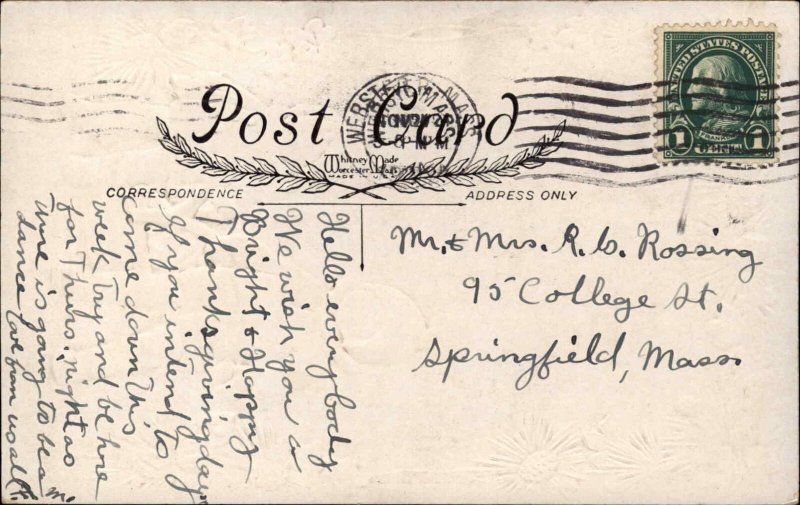 Post Card
WEBSTER, MASS.
NOV
UNITED STATES POSTAGE
FRANKLIN
1 CENT 1
Whitney Made
Worcester, Mass
MADE IN U.S.A.
CORRESPONDENCE
ADDRESS ONLY
Mr. & Mrs. R. W. Rossing
95 College St.
Springfield, Mass.
Hello everybody
We wish you a
Bright & Happy
Thanksgiving day
If you intend to
come down this
week try and be here
for Thurs. night as
there is going to be a
dance Love from us all